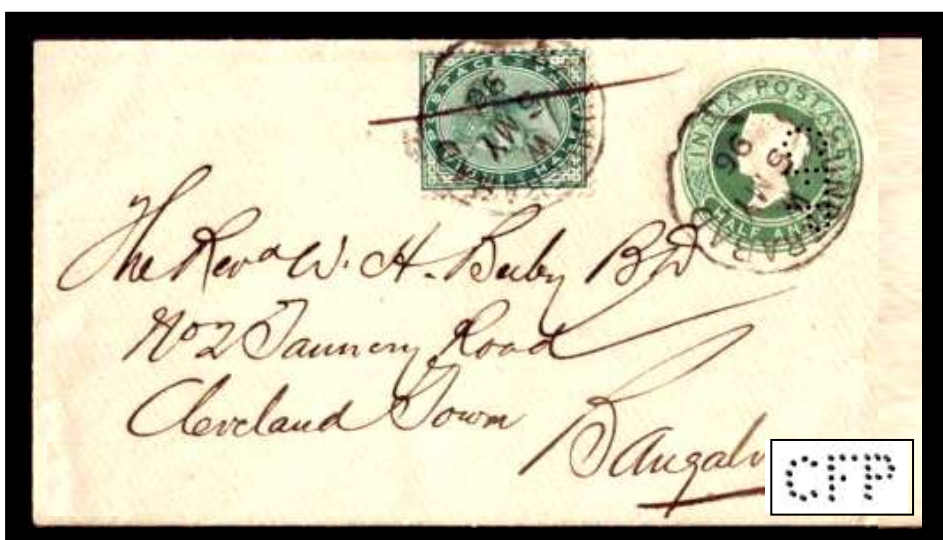 INDIA POSTAGE
HALF ANNA
MY
96
96
The Revd W. H. Beeby BD
No 2 Tannery Road
Cleveland Town
CFP